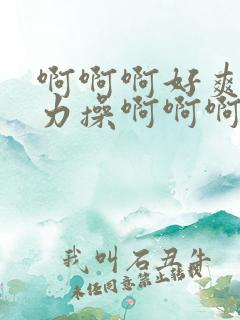 啊啊啊好爽
力操啊啊啊
我叫石丑牛
未经同意禁止转载